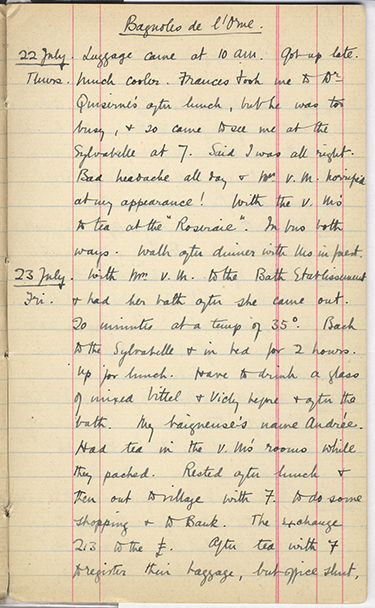 Bagnoles de l'Orne.
22 July. Luggage came at 10 am. Got up late.
Thurs. Much cooler. Frances took me to Dr
Quiserne's after lunch, but he was too
busy, & so came to see me at the
Sylvabelle at 7. Said I was all right.
Bad headache all day & Mrs V. M. horrified
at my appearance! With the V. M's
to tea at the "Roseraie". In bus both
ways. Walk after dinner with M's in forest.
23 July. With Mrs V. M. to the Bath Etablissement
Fri. & had her bath after she came out.
20 minutes at a temp of 35°. Back
to the Sylvabelle & in bed for 2 hours.
Up for lunch. Have to drink a glass
of mixed Vittel & Vichy before & after the
bath. My baigneuse's name Andrée.
Had tea in the V. M's rooms while
they packed. Rested after lunch &
then out to village with F. to do some
shopping & to Bank. The exchange
213 to the £. After tea with F
to register their baggage, but office shut,